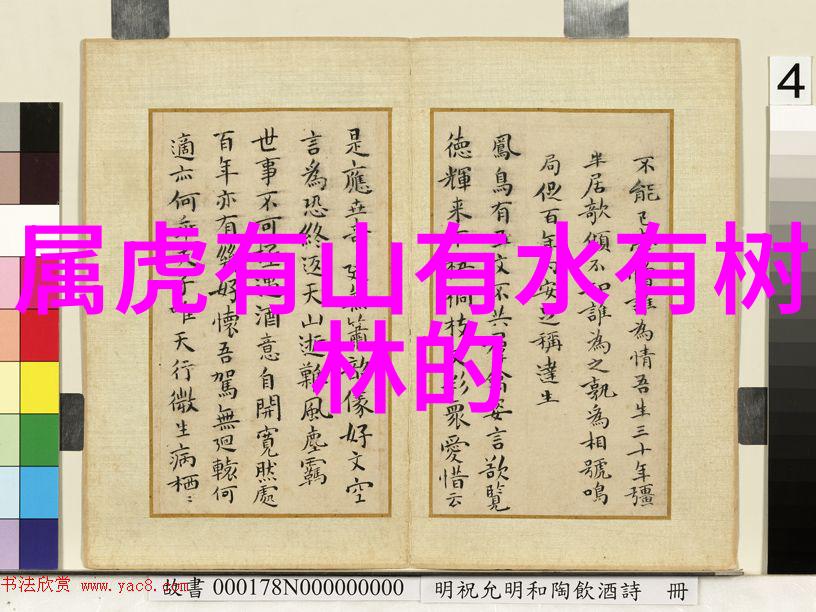 4
属虎有山有水有树
林的
不能誰為情吾生三十年彊
半居欹傾不誰為之孰為相號鳴
局促百年安稱達生
鳳鳥有文不共妄言欲覽
德輝来枝影衆愛惜云
是應像好文空
言為恐終返天山逝難風塵羈
世事不可酒意自開寬然處
百年亦有好懷吾駕無迴轅何
適亦何天行微生病栖〻
书法欣赏 www.yac8.com
故書 000178N000000000 明祝允明和陶飲酒詩 冊